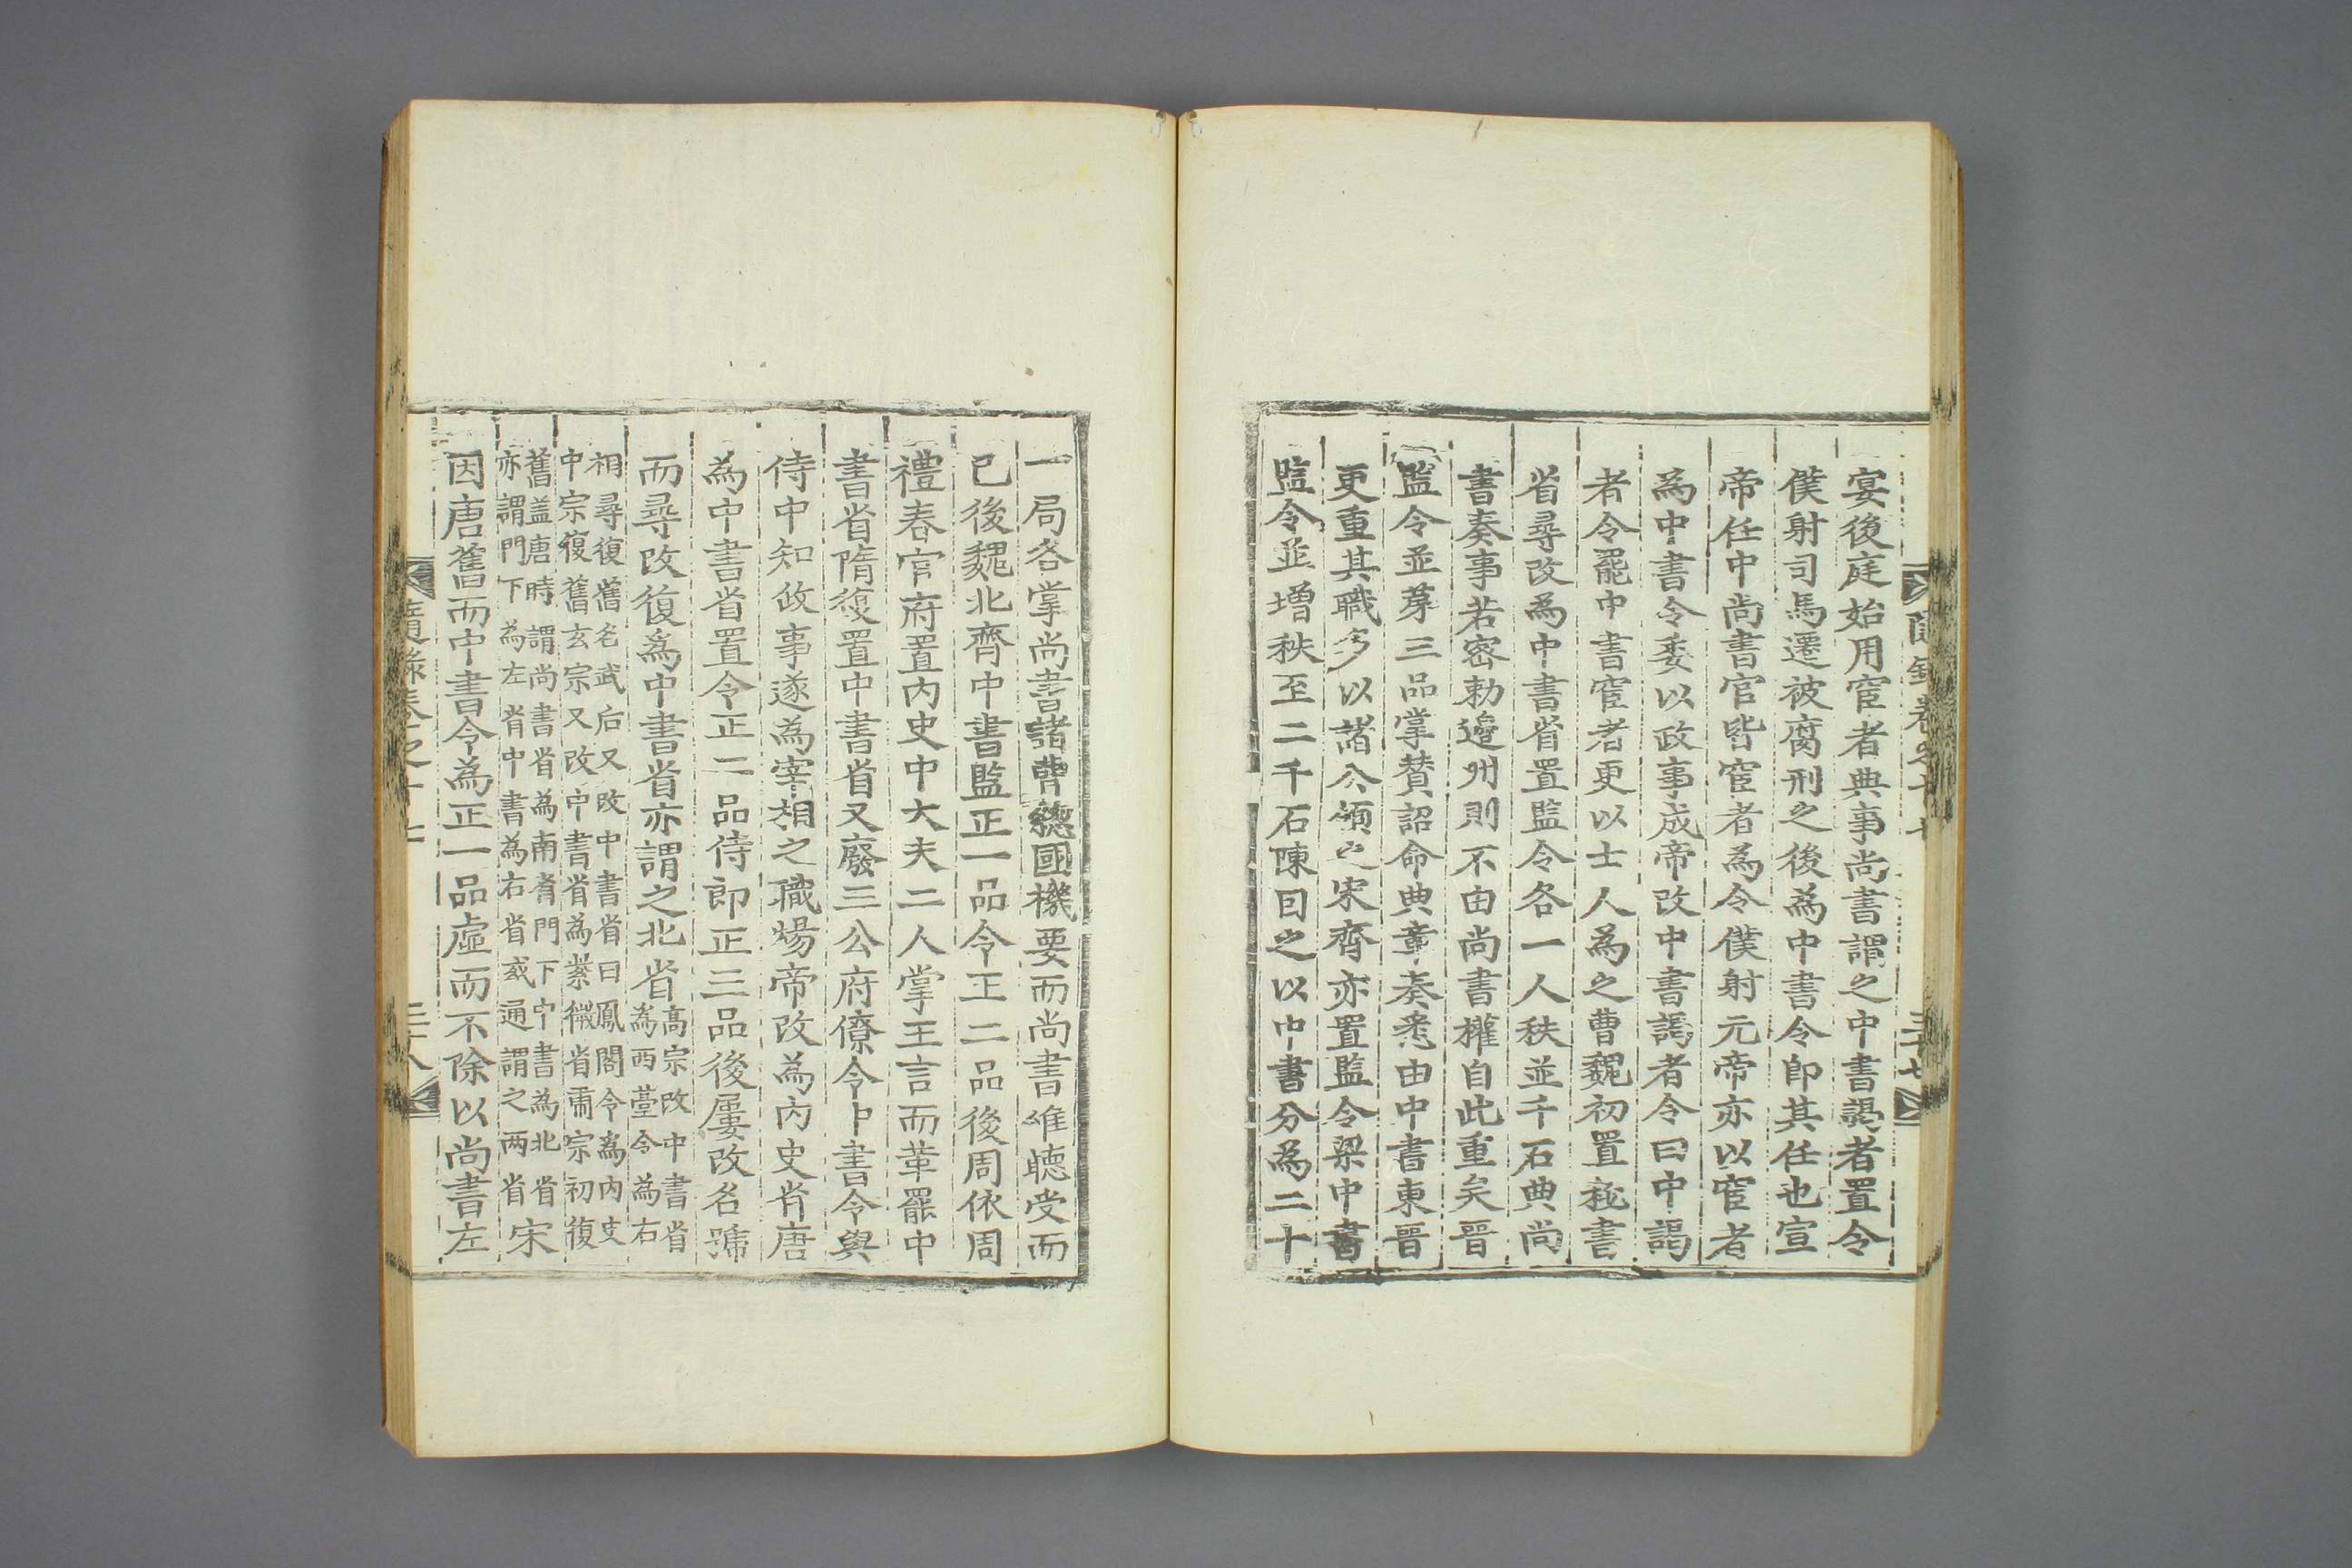 宴後庭始用宦者典事尚書謂之中書謁者置令
僕射司馬遷被腐刑之後為中書令即其任也宣
帝任中尚書官皆宦者為令僕射元帝亦以宦者
為中書令委以政事成帝改中書謁者令曰中謁
者令罷中書宦者更以士人為之曹魏初置秘書
省尋改為中書省置監令各一人秩並千石典尚
書奏事若密勅邊州則不由尚書權自此重矣晉
監令並苐三品掌賛詔命典章奏悉由中書東晉
更重其職多以諸公領之宋齊亦置監令梁中書
監令並增秩至二千石陳因之以中書分為二十
隨錄卷之十七
三十七
一局各掌尚書諸曹緫國機要而尚書唯聴受而
已後魏北齊中書監正一品令正二品後周依周
禮春官府置內史中大夫二人掌王言而葦罷中
書省隋復置中書省又廢三公府僚令中書令與
侍中知政事遂為宰相之職煬帝改為內史省唐
為中書省置令正二品侍郎正三品後屢改名號
而尋改復為中書省亦謂之北省高宗改中書省
為西臺令為右
相尋復舊名武后又改中書省曰鳳閣令為內史
中宗復舊玄宗又改中書省為紫微省肅宗初復
舊盖唐時謂尚書省為南省門下中書為北省
亦謂門下為左省中書為右省或通謂之两省宋
因唐舊而中書令為正一品虛而不除以尚書左
隨錄卷之十七
三十八